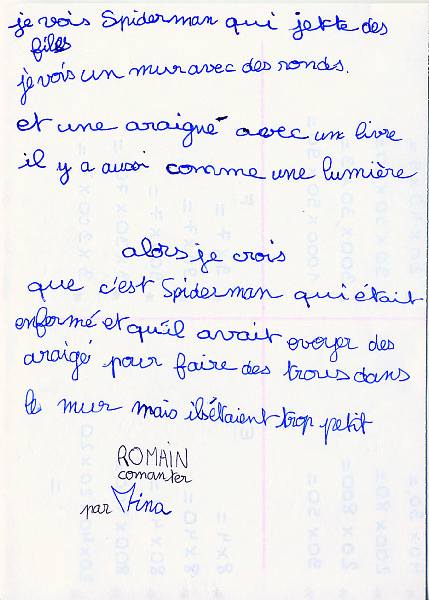 je vois Spiderman qui jette des
files
je vois un mur avec des ronds.
et une araigné avec un livre
il y a aussi comme une lumière
alors je crois
que c'est Spiderman qui était
enfermé et qu'il avait ovoyer des
araigé pour faire des trous dans
le mur mais ils étaient trop petit
ROMAIN
comanter
par Mina